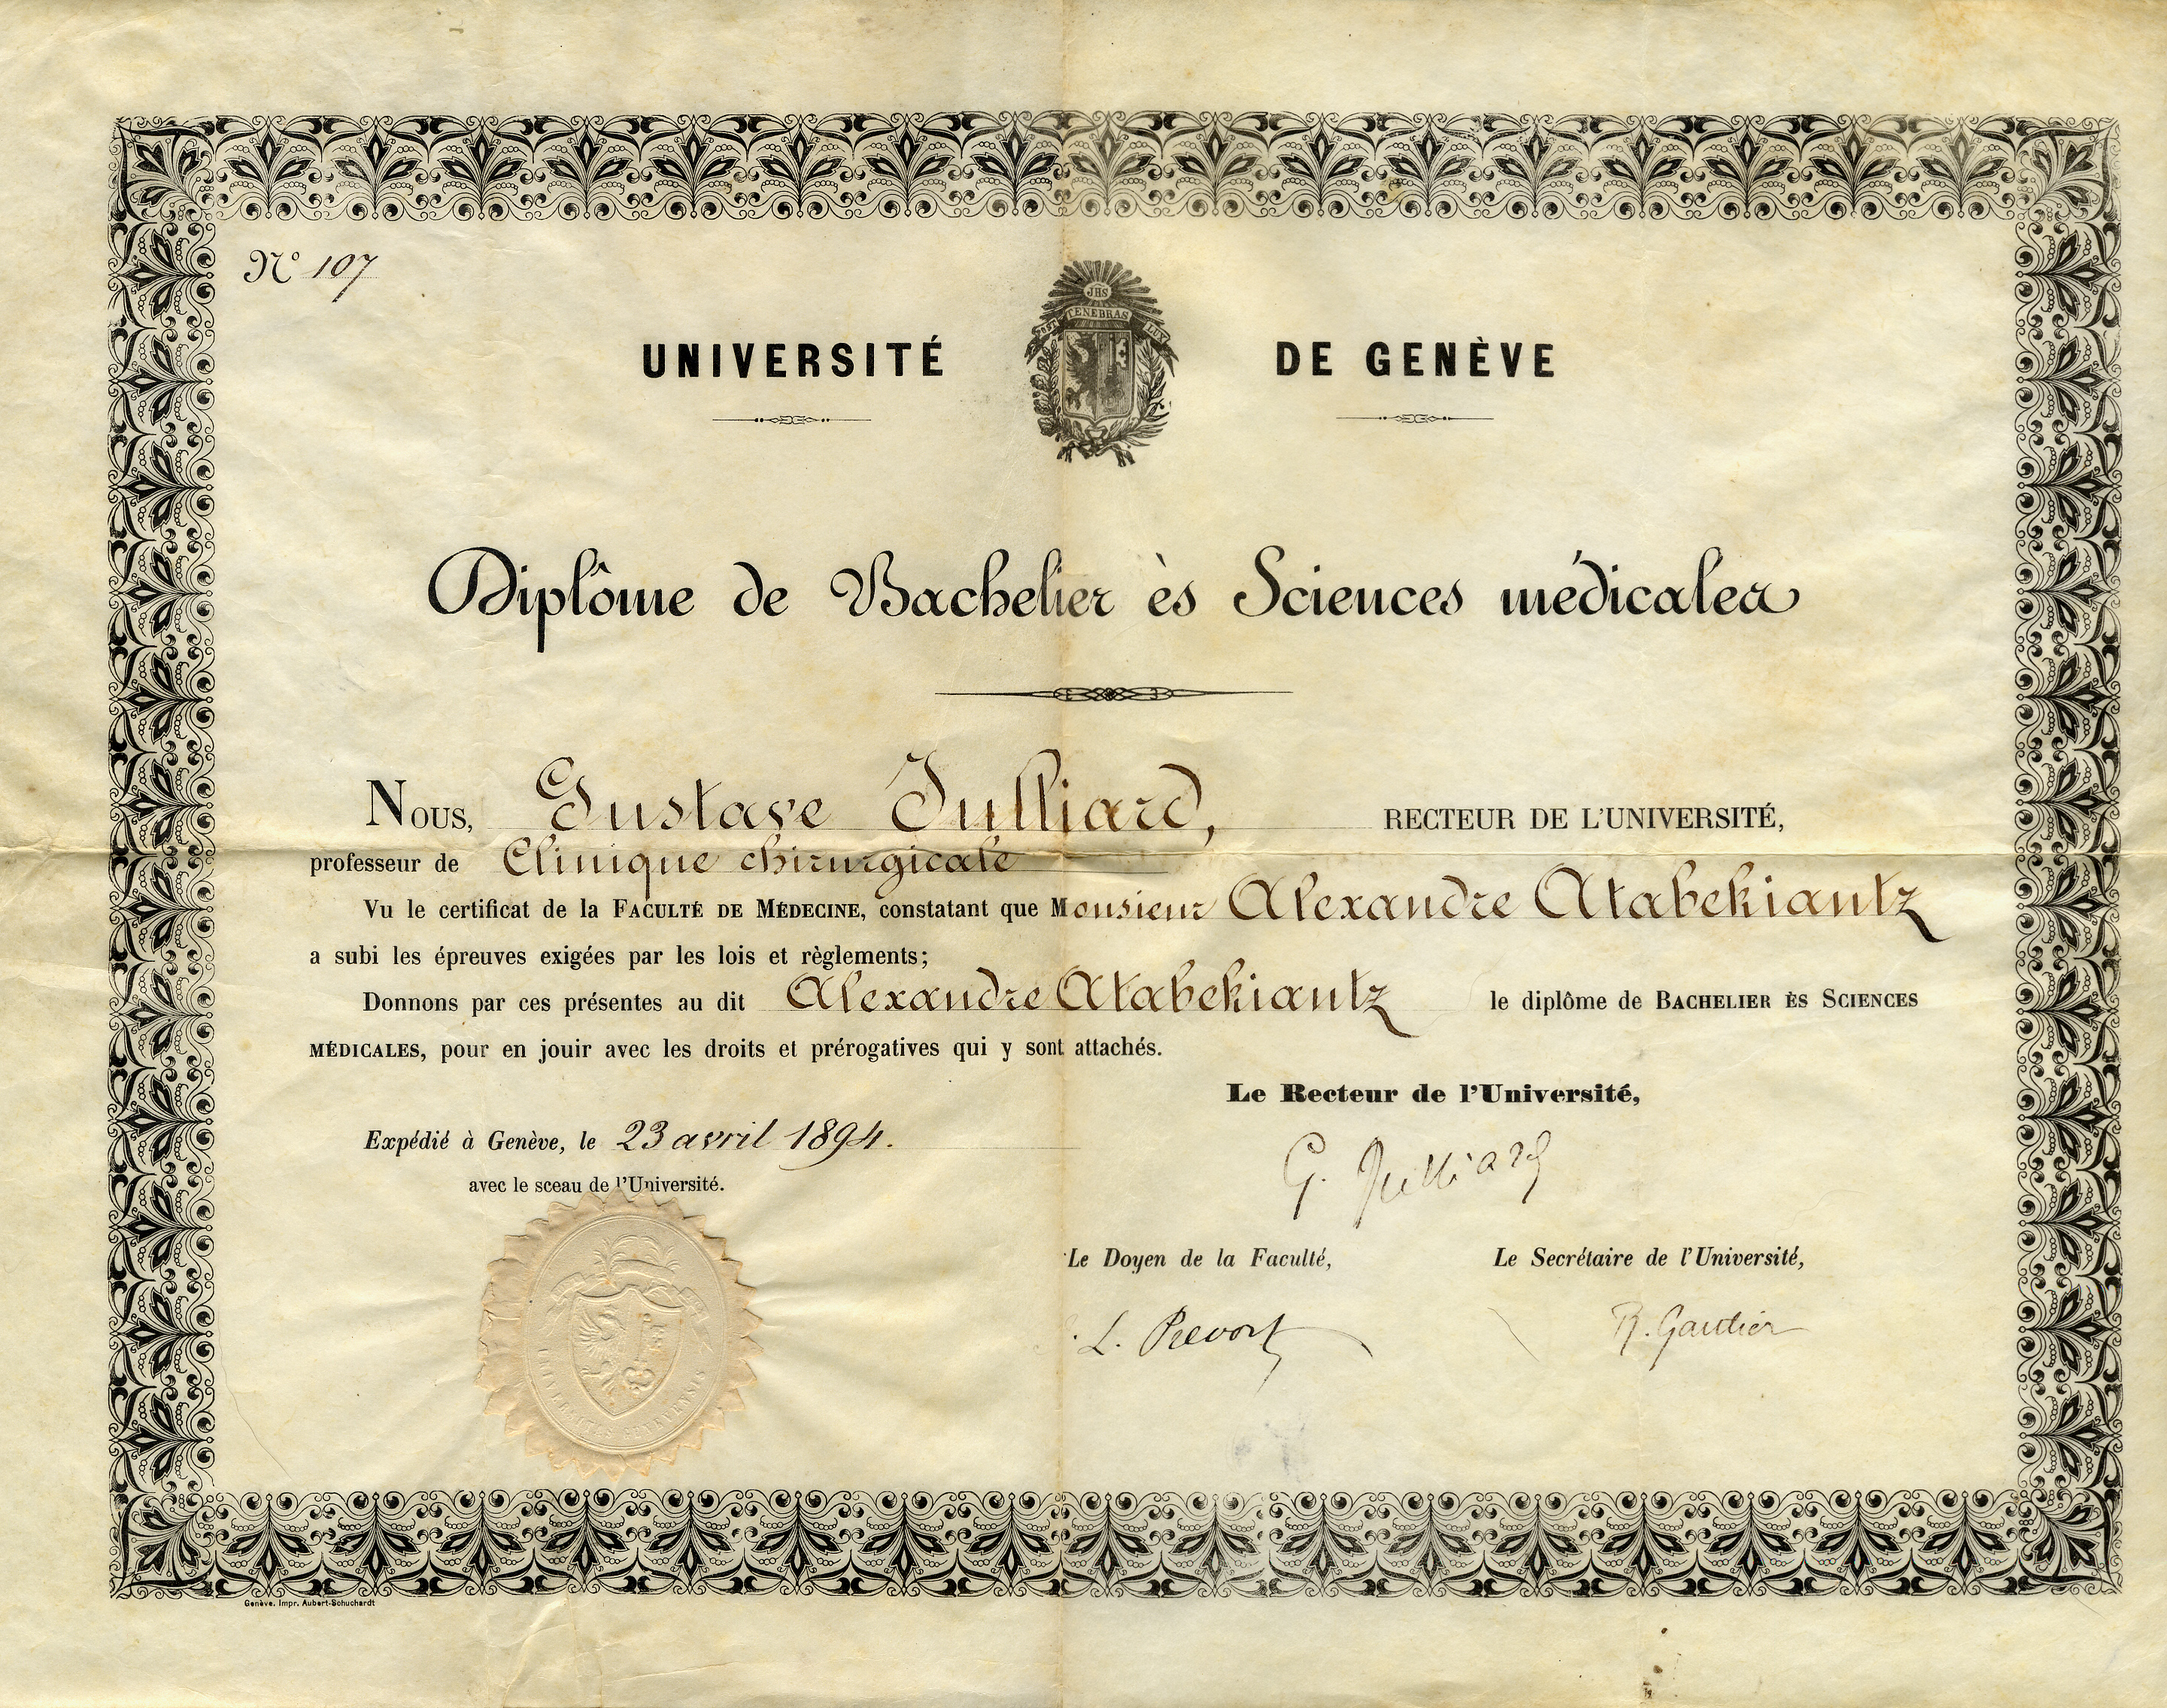 Nº 107
JHS
POST TENEBRAS LUX
UNIVERSITÉ DE GENÈVE
Diplôme de Bachelier ès Sciences médicales
NOUS, Gustave Julliard, RECTEUR DE L'UNIVERSITÉ,
professeur de Clinique chirurgicale
Vu le certificat de la FACULTÉ DE MÉDECINE, constatant que Monsieur Alexandre Atabekiantz
a subi les épreuves exigées par les lois et règlements;
Donnons par ces présentes au dit Alexandre Atabekiantz le diplôme de BACHELIER ÈS SCIENCES
MÉDICALES, pour en jouir avec les droits et prérogatives qui y sont attachés.
Le Recteur de l'Université,
Expédié à Genève, le 23 avril 1894.
G. Julliard
avec le sceau de l'Université.
Le Doyen de la Faculté, Le Secrétaire de l'Université,
L. Prevost
R. Gautier
GENEVENSIS
Genève. Impr. Aubert-Schuchardt